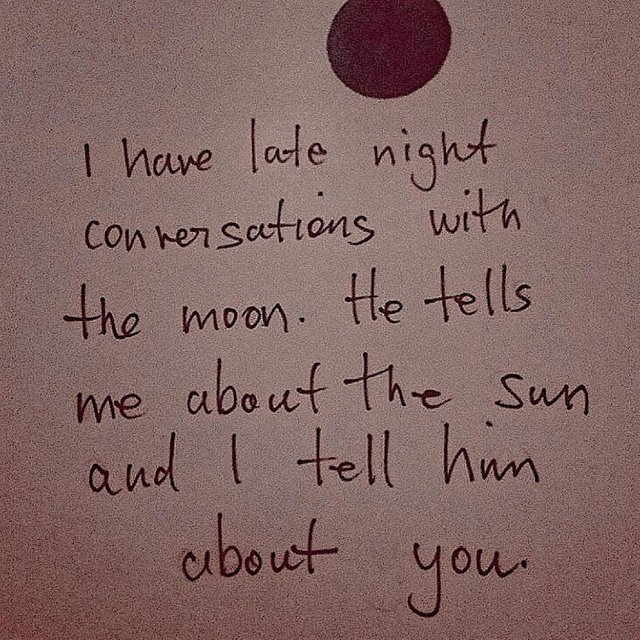 I have late night
conversations with
the moon. He tells
me about the sun
and I tell him
about you.